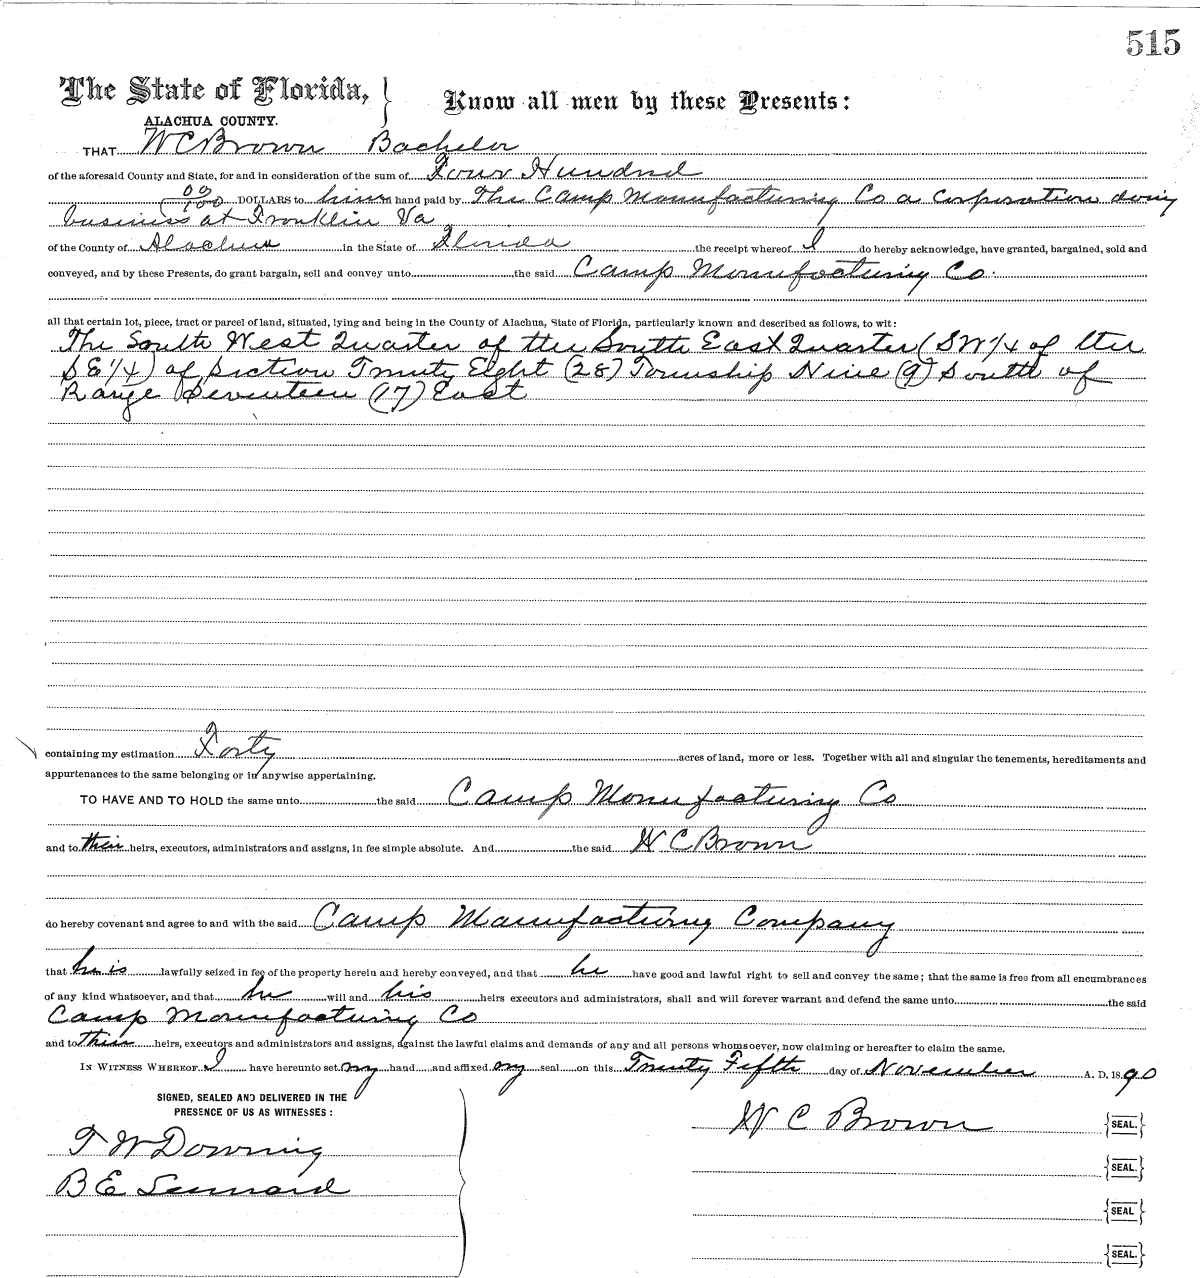 515
The State of Florida, } Know all men by these Presents:
ALACHUA COUNTY.
THAT W C Brown Bachelor
of the aforesaid County and State, for and in consideration of the sum of Four Hundred
00/100 DOLLARS to him in hand paid by The Camp Manufacturing Co a Corporation doing
business at Franklin Va
of the County of Alachua in the State of Florida the receipt whereof I do hereby acknowledge, have granted, bargained, sold and
conveyed, and by these Presents, do grant bargain, sell and convey unto the said Camp Manufacturing Co.
all that certain lot, piece, tract or parcel of land, situated, lying and being in the County of Alachua, State of Florida, particularly known and described as follows, to wit:
The South West Quarter of the South East Quarter (SW 1/4 of the
SE 1/4) of Section Twenty Eight (28) Township Nine (9) South of
Range Seventeen (17) East
containing my estimation Forty acres of land, more or less. Together with all and singular the tenements, hereditaments and
appurtenances to the same belonging or in anywise appertaining.
TO HAVE AND TO HOLD the same unto the said Camp Manufacturing Co
and to their heirs, executors, administrators and assigns, in fee simple absolute. And the said W C Brown
do hereby covenant and agree to and with the said Camp Manufacturing Company
that he is lawfully seized in fee of the property herein and hereby conveyed, and that he have good and lawful right to sell and convey the same; that the same is free from all encumbrances
of any kind whatsoever, and that he will and his heirs executors and administrators, shall and will forever warrant and defend the same unto the said
Camp Manufacturing Co
and to their heirs, executors and administrators and assigns, against the lawful claims and demands of any and all persons whomsoever, now claiming or hereafter to claim the same.
IN WITNESS WHEREOF I have hereunto set my hand and affixed my seal on this Twenty Fifth day of November A. D. 1890
SIGNED, SEALED AND DELIVERED IN THE
PRESENCE OF US AS WITNESSES:
W C Brown {SEAL.}
T W Downing
{SEAL.}
B E Lennard
{SEAL}
{SEAL.}